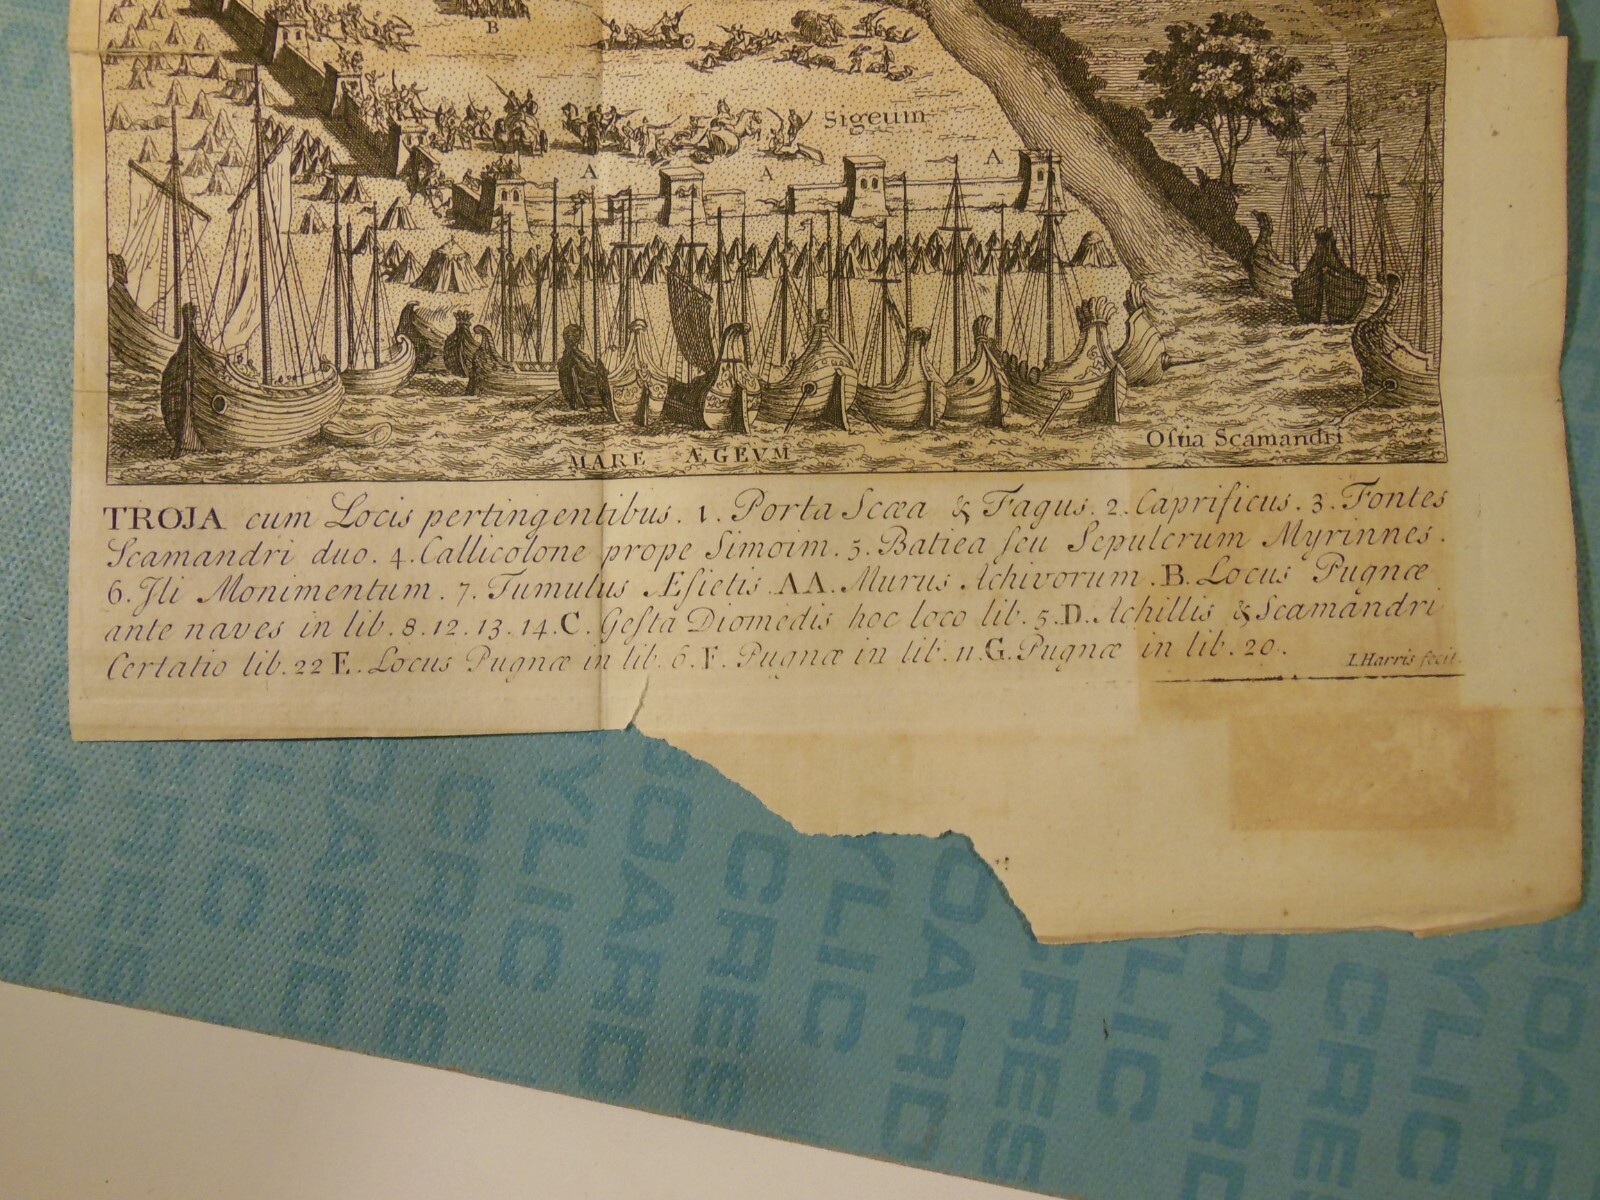 B
Sigeum
A
A
A
Ostia Scamandri
MARE ÆGEVM
TROJA cum Locis pertingentibus. 1. Porta Scæa & Fagus. 2. Caprificus. 3. Fontes
Scamandri duo. 4. Callicolone prope Simoim. 5. Batiea ſeu Sepulcrum Myrinnes.
6. Ili Monimentum. 7. Tumulus Æſietis. AA. Murus Achivorum. B. Locus Pugnæ
ante naves in lib. 8. 12. 13. 14. C. Geſta Diomedis hoc loco lib. 5. D. Achillis & Scamandri
Certatio lib. 22 E. Locus Pugnæ in lib. 6. F. Pugnæ in lib. 11. G. Pugnæ in lib. 20.
I. Harris fecit.